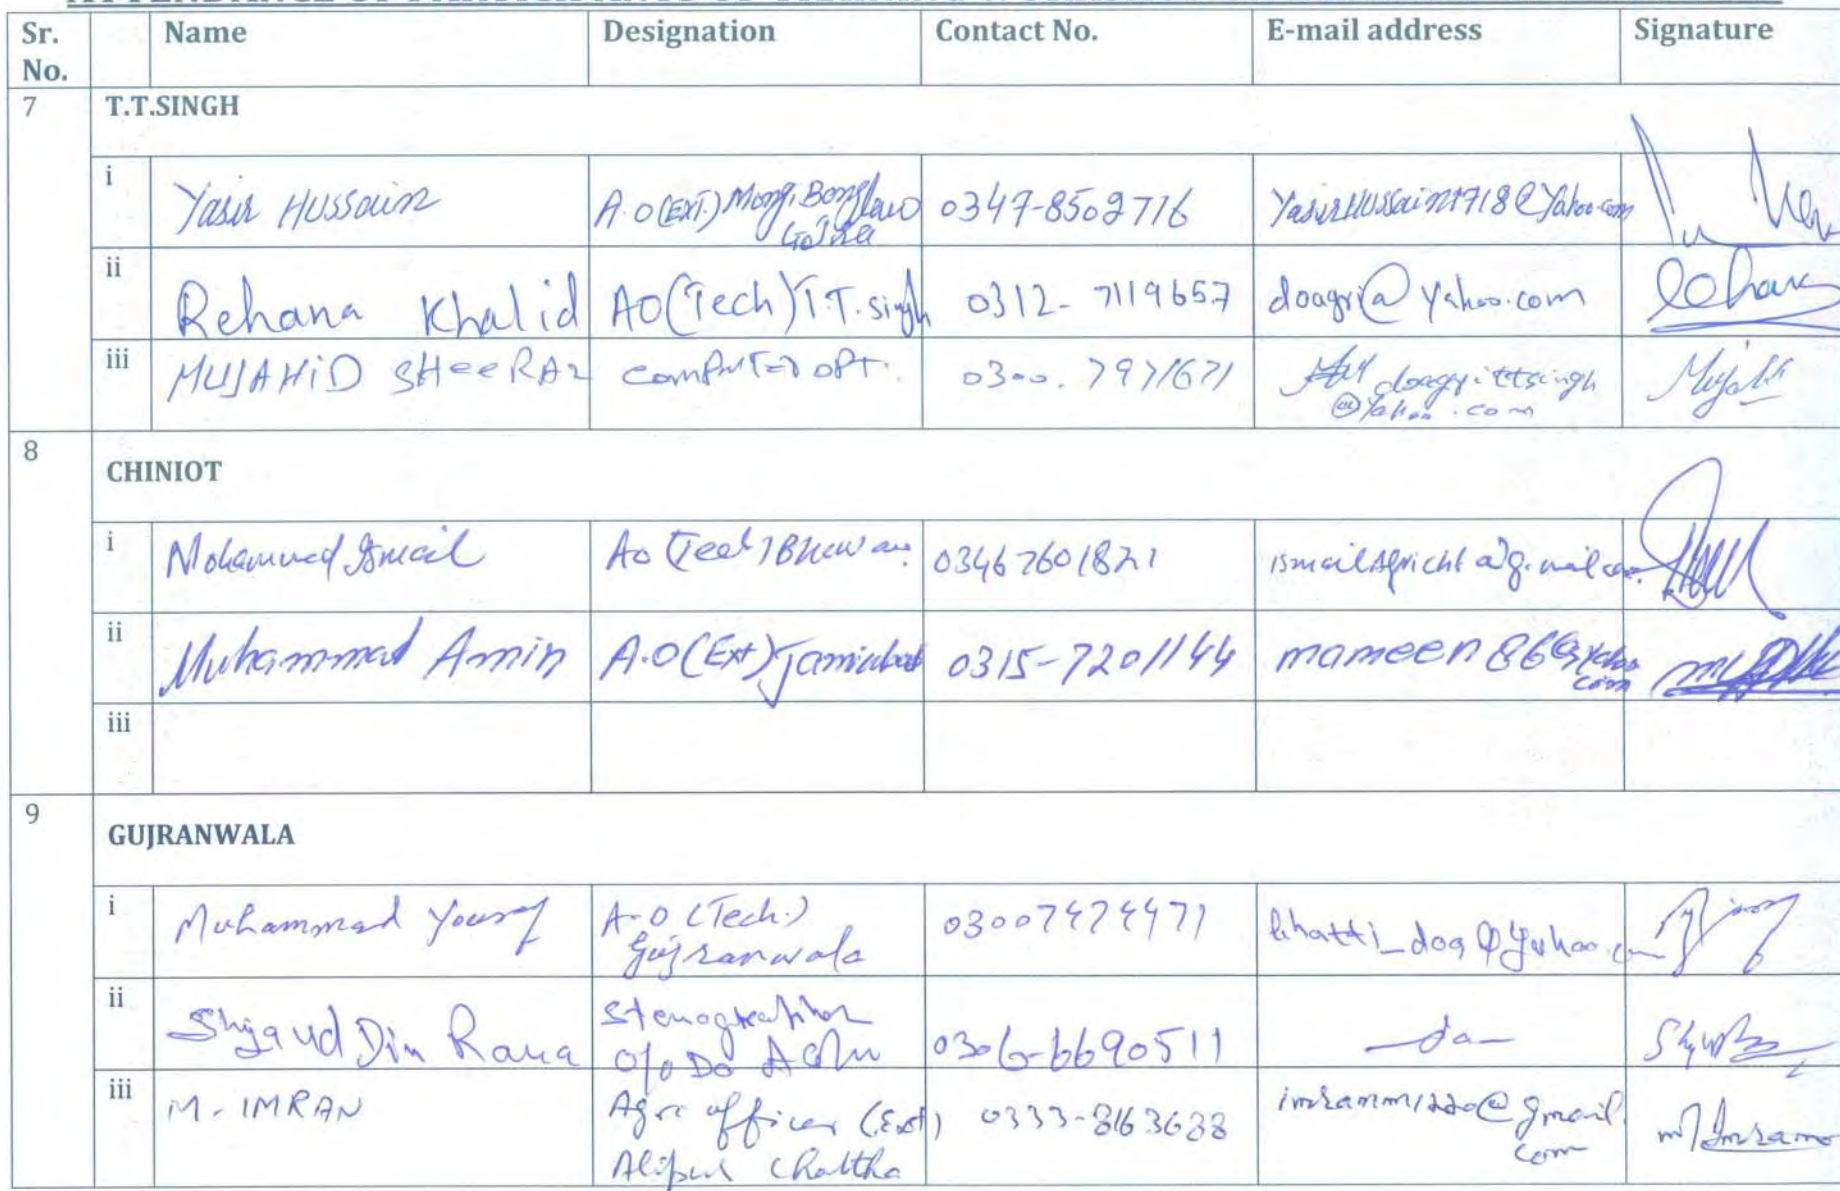 Sr. No. Name Designation Contact No. E-mail address Signature
7 T.T.SINGH
i Yasir Hussain A.O(EXT.) Mongi Bonglow Gojra 0347-8502716 YasirHussain1718@Yahoo.com
ii Rehana Khalid AO(Tech) T.T. singh 0312-7119657 doagri@yahoo.com
iii MUJAHID SHEERAZ computer opt. 0300.7971671 doagrittsingh @Yahoo.com
8 CHINIOT
i Mohammad Ismail AO (Tech) 03467601821
ii Muhammad Amin A.O(Ext) 0315-7201144 mameen86@yahoo.com
iii
9 GUJRANWALA
i Muhammad Yousaf A.O (Tech.) Gujranwala 03007474471 bhatti_doa@yahoo.com
ii Din Rana Stenographer O/o DO 0306-6690511 -do-
iii M-IMRAN Agri officer (Ext) Alipur Chattha 0333-8163688 @gmail.com M Imran